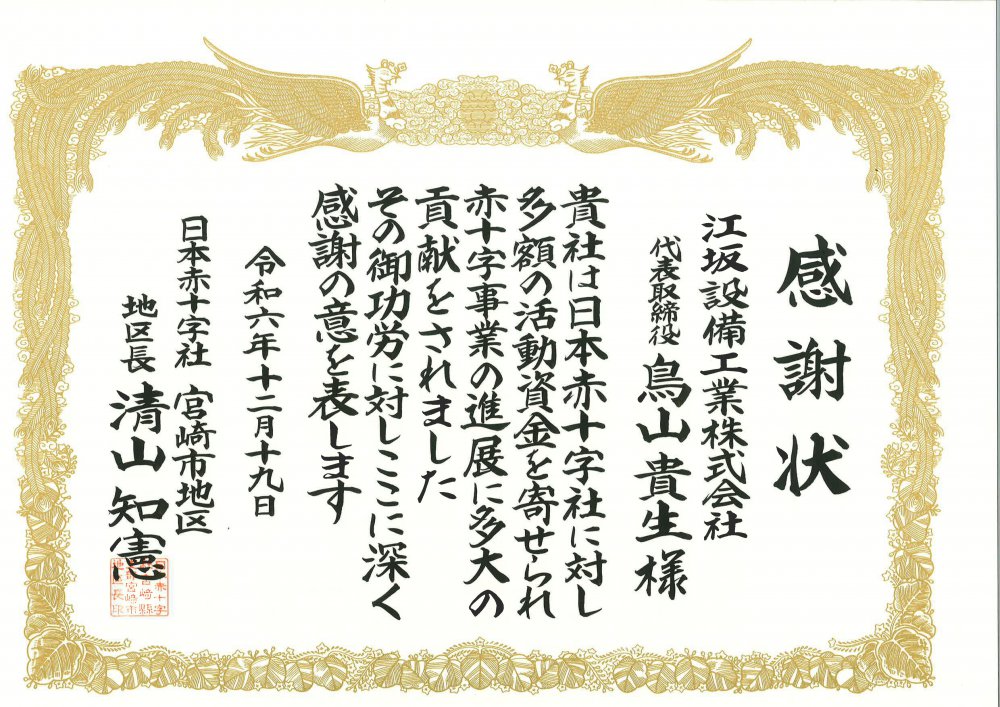 感謝状
江坂設備工業株式会社
代表取締役 鳥山貴生様
貴社は日本赤十字社に対し
多額の活動資金を寄せられ
赤十字事業の進展に多大の
貢献をされました
その御功労に対しここに深く
感謝の意を表します
令和六年十二月十九日
日本赤十字社 宮崎市地区
地区長 清山知憲